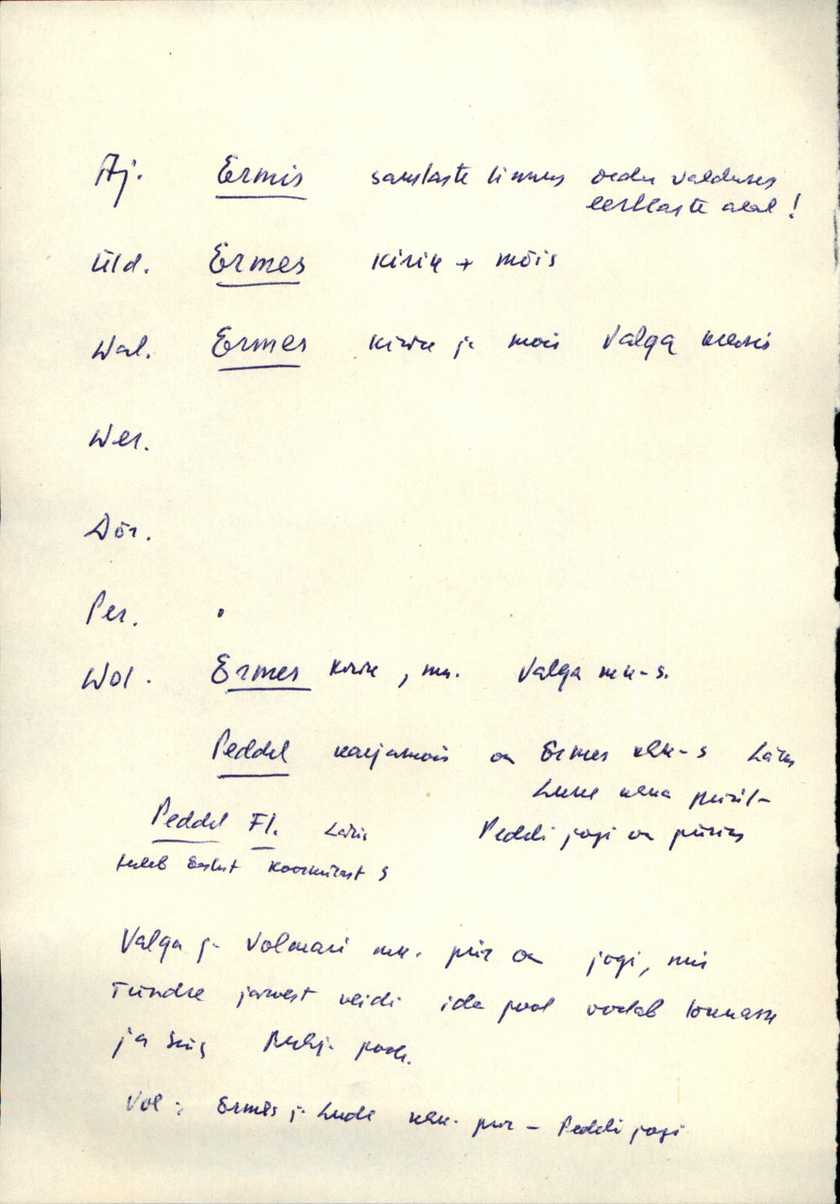 Aj. Ermis sakslaste linnus ordu valduses
eestlaste alal!
Üld. Ermes kirik + mõis
Wal. Ermes kirik ja mõis Valga kreisis
Wer.
Dör.
Per.
Wol. Ermes kirik, m. Valga mk-s.
Peddel karjamõis on Ermes khk-s Lätis
Luke piiril-
Peddel Fl. Lätis Peddeli jõgi on piiriks
tuleb Eestist
Valga ja Volmari mk. piir on jõgi, mis
Tündre järvest veidi ida pool voolab lõunasse
ja siis poole.
Vol: Ermes j. Lude khk. piir - Peddeli jõgi